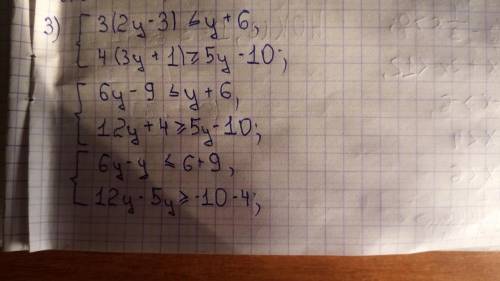 3) 3(2y-3) ≤ y+6,
4(3y+1) ≥ 5y-10;
6y-9 ≤ y+6,
12y+4 ≥ 5y-10;
6y-y ≤ 6+9,
12y-5y ≥ -10-4;